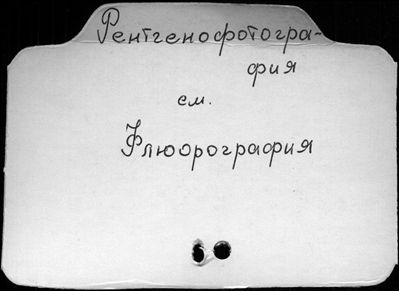 Рентгенофотогра-
фия
см.
Флюорография